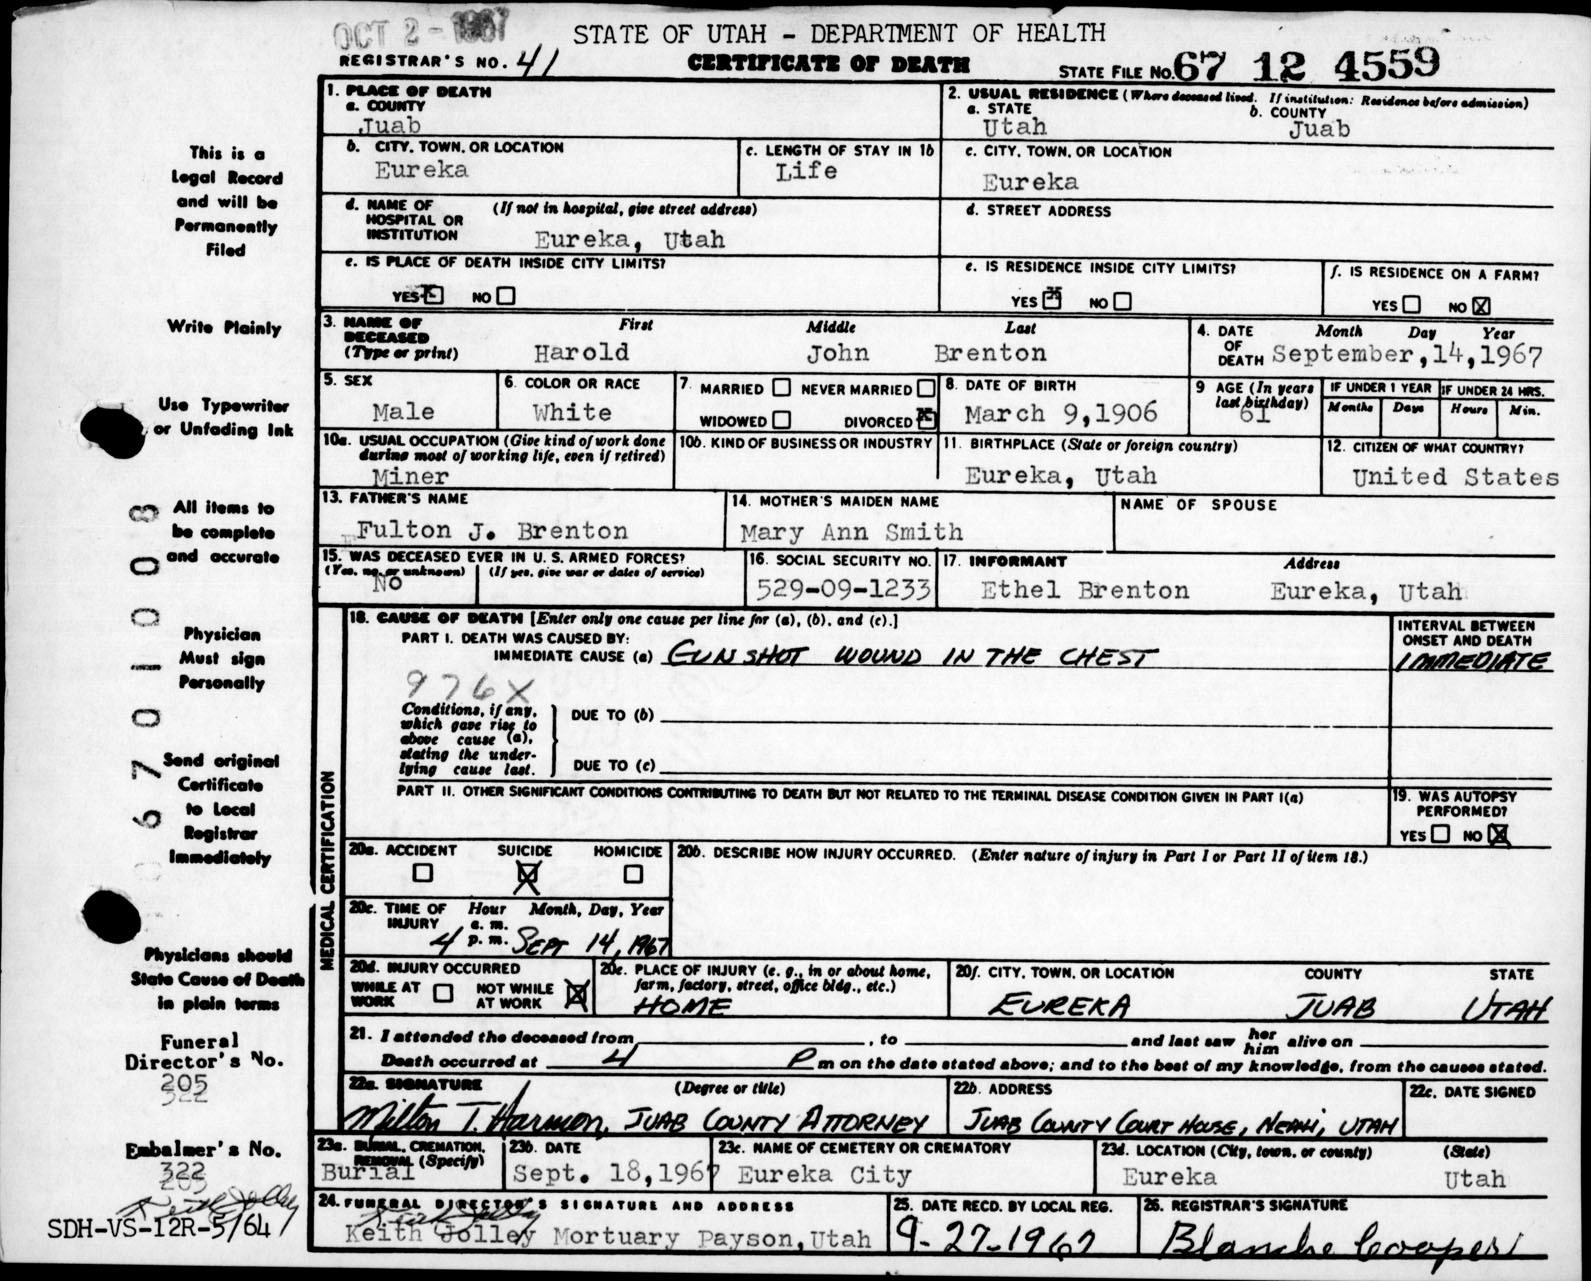 OCT 2 - 1967
STATE OF UTAH - DEPARTMENT OF HEALTH
REGISTRAR'S NO. 41
CERTIFICATE OF DEATH
STATE FILE NO. 67 12 4559
1. PLACE OF DEATH
a. COUNTY
Juab
2. USUAL RESIDENCE (Where deceased lived. If institution: Residence before admission)
a. STATE
Utah
b. COUNTY
Juab
b. CITY, TOWN, OR LOCATION
Eureka
c. LENGTH OF STAY IN 1b
Life
c. CITY, TOWN, OR LOCATION
Eureka
d. NAME OF HOSPITAL OR INSTITUTION
(If not in hospital, give street address)
Eureka, Utah
d. STREET ADDRESS
e. IS PLACE OF DEATH INSIDE CITY LIMITS?
YES X NO
e. IS RESIDENCE INSIDE CITY LIMITS?
YES X NO
f. IS RESIDENCE ON A FARM?
YES NO X
3. NAME OF DECEASED
(Type or print)
First Middle Last
Harold John Brenton
4. DATE OF DEATH
Month Day Year
September,14,1967
5. SEX
Male
6. COLOR OR RACE
White
7. MARRIED NEVER MARRIED
WIDOWED DIVORCED X
8. DATE OF BIRTH
March 9,1906
9 AGE (In years last birthday)
61
IF UNDER 1 YEAR
Months Days
IF UNDER 24 HRS.
Hours Min.
10a. USUAL OCCUPATION (Give kind of work done during most of working life, even if retired)
Miner
10b. KIND OF BUSINESS OR INDUSTRY
11. BIRTHPLACE (State or foreign country)
Eureka, Utah
12. CITIZEN OF WHAT COUNTRY?
United States
13. FATHER'S NAME
Fulton J. Brenton
14. MOTHER'S MAIDEN NAME
Mary Ann Smith
NAME OF SPOUSE
15. WAS DECEASED EVER IN U. S. ARMED FORCES?
(Yes, no, or unknown) (If yes, give war or dates of service)
No
16. SOCIAL SECURITY NO.
529-09-1233
17. INFORMANT Address
Ethel Brenton Eureka, Utah
MEDICAL CERTIFICATION
18. CAUSE OF DEATH [Enter only one cause per line for (a), (b), and (c).]
PART I. DEATH WAS CAUSED BY:
IMMEDIATE CAUSE (a) GUNSHOT WOUND IN THE CHEST
INTERVAL BETWEEN ONSET AND DEATH
IMMEDIATE
976X
Conditions, if any, which gave rise to above cause (a), stating the underlying cause last.
DUE TO (b)
DUE TO (c)
PART II. OTHER SIGNIFICANT CONDITIONS CONTRIBUTING TO DEATH BUT NOT RELATED TO THE TERMINAL DISEASE CONDITION GIVEN IN PART I(a)
19. WAS AUTOPSY PERFORMED?
YES NO X
20a. ACCIDENT SUICIDE HOMICIDE
X
20b. DESCRIBE HOW INJURY OCCURRED. (Enter nature of injury in Part I or Part II of item 18.)
20c. TIME OF INJURY
Hour Month, Day, Year
a. m.
4 p. m. SEPT 14, 1967
20d. INJURY OCCURRED
WHILE AT WORK NOT WHILE AT WORK X
20e. PLACE OF INJURY (e. g., in or about home, farm, factory, street, office bldg., etc.)
HOME
20f. CITY, TOWN, OR LOCATION COUNTY STATE
EUREKA JUAB UTAH
21. I attended the deceased from , to and last saw her him alive on
Death occurred at 4 P m on the date stated above; and to the best of my knowledge, from the causes stated.
22a. SIGNATURE (Degree or title)
Milton T. Harmon, JUAB COUNTY ATTORNEY
22b. ADDRESS
JUAB COUNTY COURT HOUSE, NEPHI, UTAH
22c. DATE SIGNED
23a. BURIAL, CREMATION, REMOVAL (Specify)
Burial
23b. DATE
Sept. 18,1967
23c. NAME OF CEMETERY OR CREMATORY
Eureka City
23d. LOCATION (City, town, or county) (State)
Eureka Utah
24. FUNERAL DIRECTOR'S SIGNATURE AND ADDRESS
Keith Jolley
Keith Jolley Mortuary Payson,Utah
25. DATE RECD. BY LOCAL REG.
9-27-1967
26. REGISTRAR'S SIGNATURE
Blanche Cooper
This is a
Legal Record
and will be
Permanently
Filed
Write Plainly
Use Typewriter
or Unfading Ink
All items to
be complete
and accurate
Physician
Must sign
Personally
Send original
Certificate
to Local
Registrar
Immediately
Physicians should
State Cause of Death
in plain terms
Funeral
Director's No.
205
322
Embalmer's No.
322
205
Keith Jolley
SDH-VS-12R-5/64
0 6 7 0 1 0 0 8